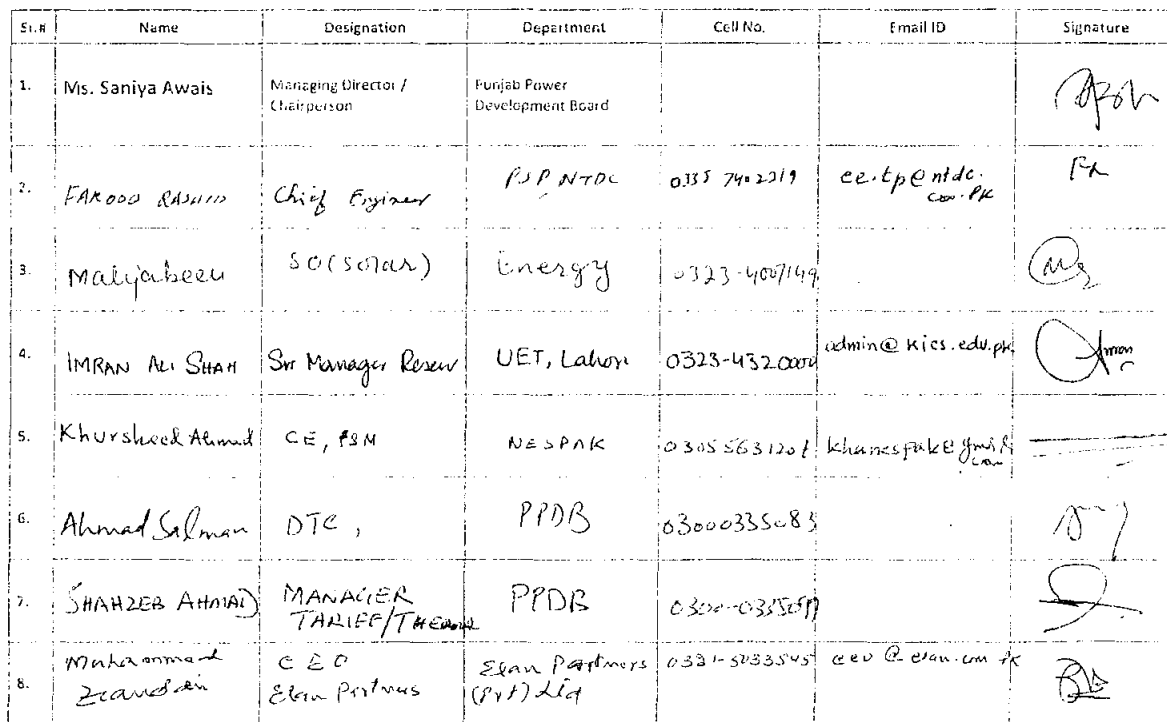 Sr.# Name Designation Department Cell No. Email ID Signature
1. Ms. Saniya Awais Managing Director / Chairperson Punjab Power Development Board
2. FAROOQ RASHID Chief Engineer PSP NTDC 0335 7402319 ce.tp@ntdc.com.PK
3. Mahjabeen SO(Solar) Energy
4. IMRAN ALI SHAH Snr Manager UET, Lahore admin@kics.edu.pk
5. Khursheed Ahmad CE, NESPAK 0305 5631201
6. Ahmad Salman DTC, PPDB 03000335083
7. SHAHZEB AHMAD MANAGER TARIFF/ PPDB
8. Muhammad CEO Elan Partners Elan Partners (Pvt) Ltd 0321-5033545